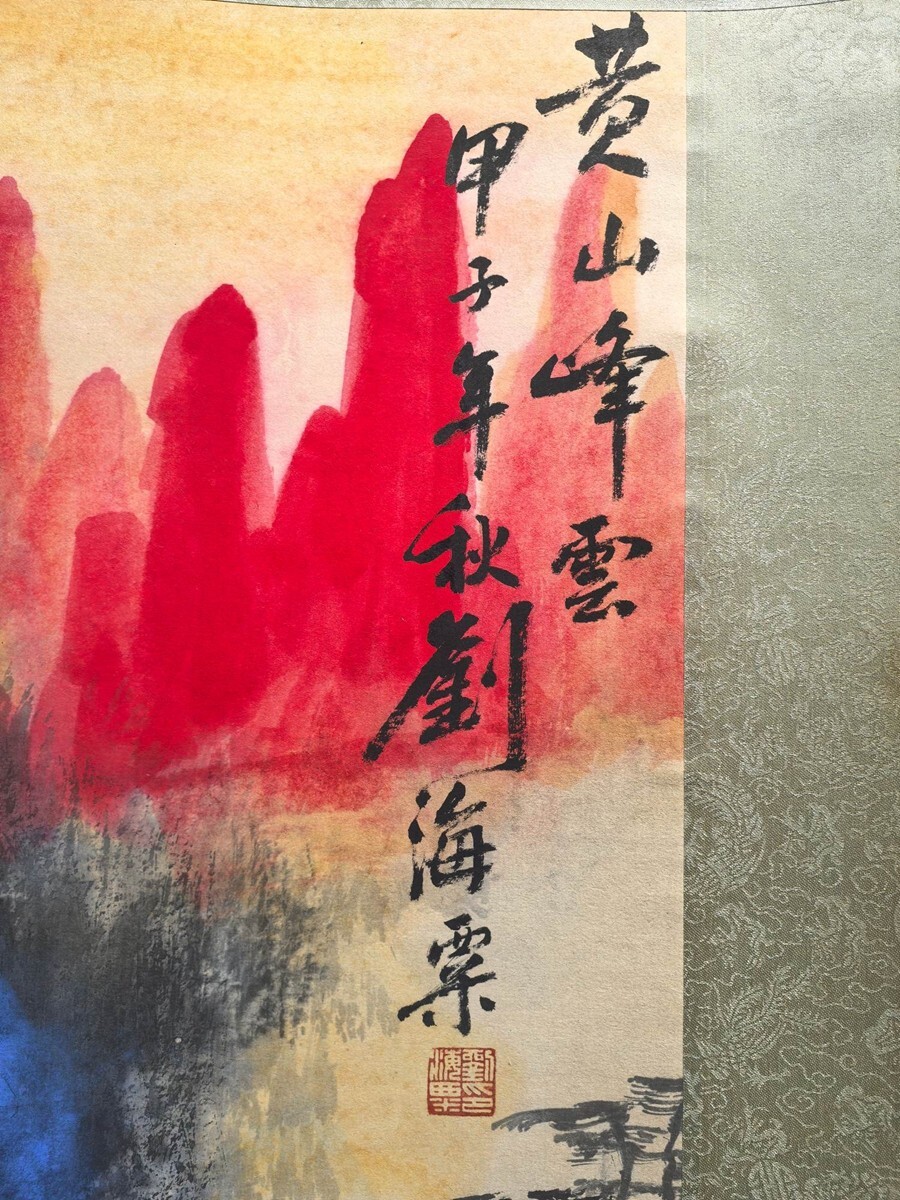 黄山峰雲
甲子年秋劉海粟
劉海粟印